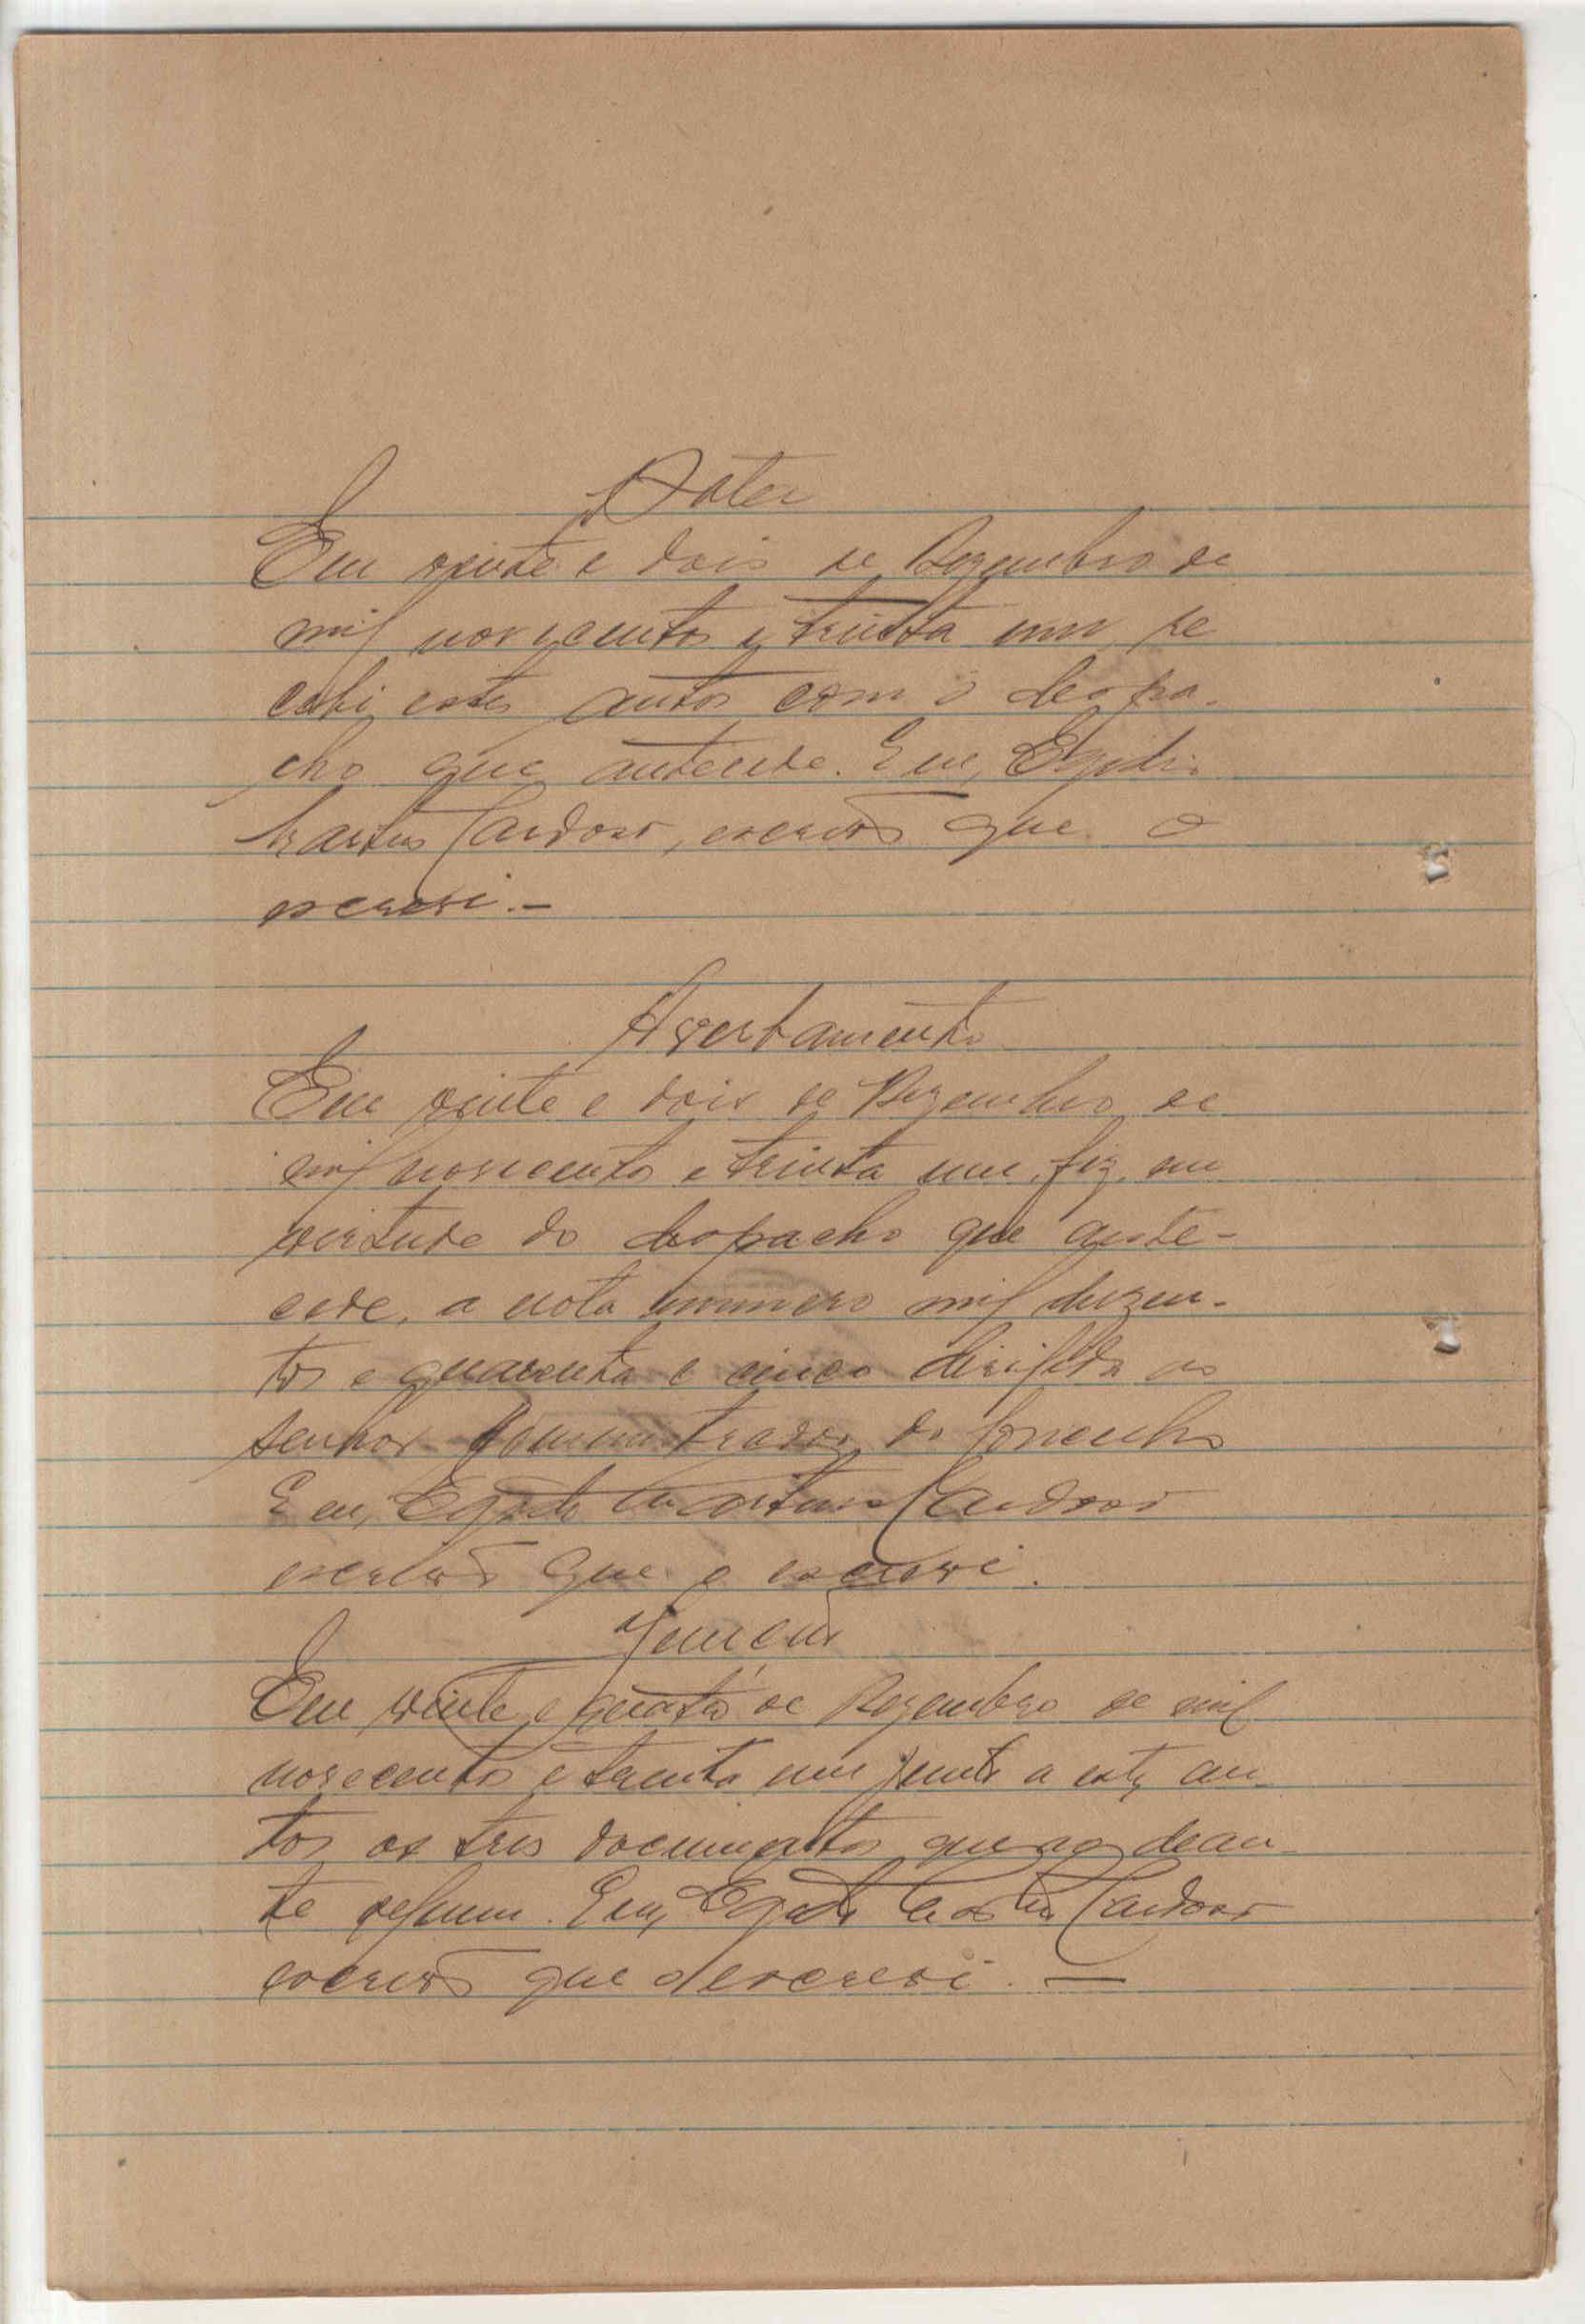 Data
Em vinte e dois de Dezembro de
mil novecentos e trinta um, re
cebi estes autos com o despa-
cho que antecede. E eu, Egidio
Martins Cardoso, escrivão que o
escrevi.-
Em vinte e dois de Dezembro de
mil novecentos e trinta um, fiz, em
virtude do despacho que ante-
cede, a nota numero mil duzen-
tos e quarenta e cinco dirigida ao
senhor Administrador do Concelho
E eu, Egidio Martins Cardoso
escrivão que o escrevi.
Juncção
Em vinte e quatro de Dezembro de mil
novecentos e trinta um junto a estes au-
tos os tres documentos que ao dean-
te seguem. E eu, Egidio Martins Cardoso
escrivão que o escrevi. —